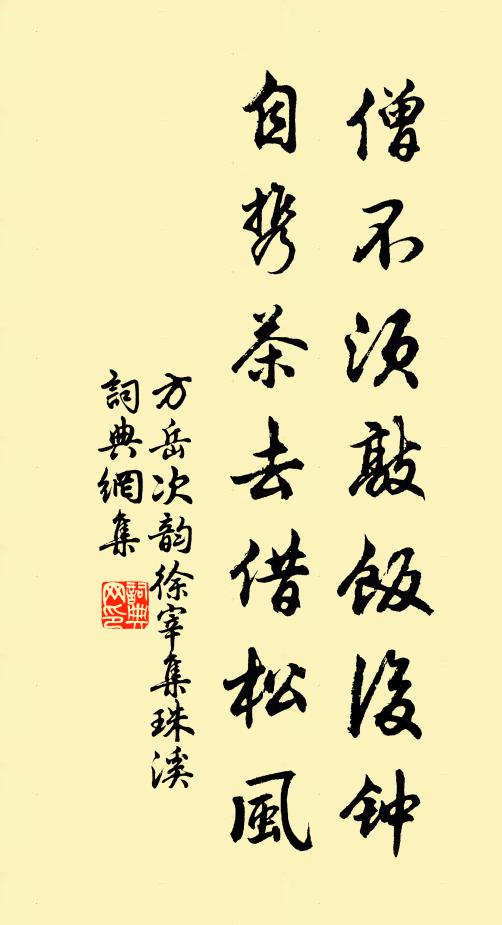 僧不须敲饭后钟
自携茶去借松風
方岳次韵徐宰集珠溪
詞典網集
詞典網印